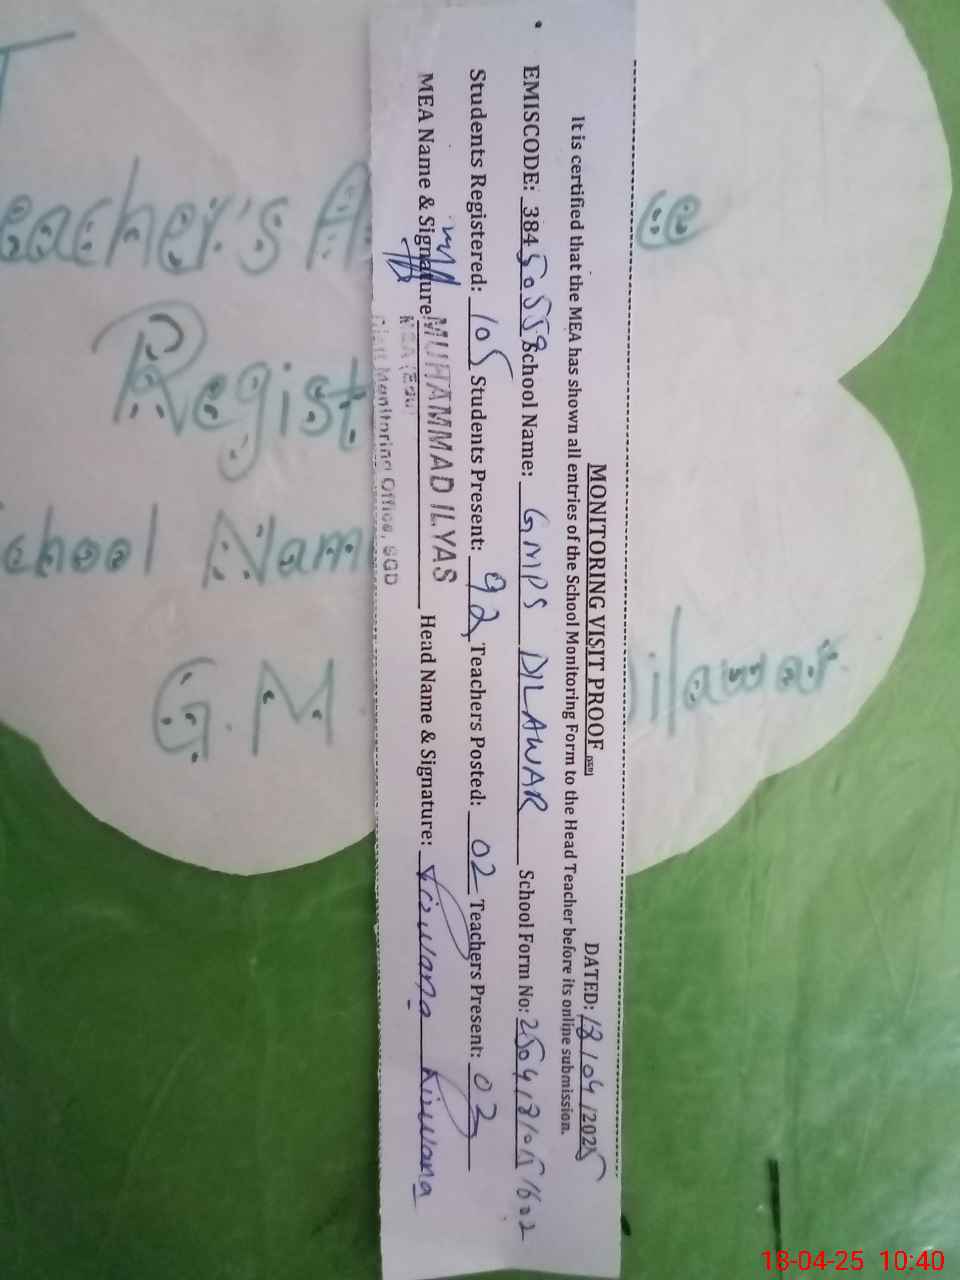 MONITORING VISIT PROOF DATED: 18/04/2025
It is certified that the MEA has shown all entries of the School Monitoring Form to the Head Teacher before its online submission.
EMISCODE: 38450559 School Name: GMPS DILAWAR School Form No:
Students Registered: 105 Students Present: 92 Teachers Posted: 02 Teachers Present: 02
MEA Name & Signature: MUHAMMAD ILYAS Head Name & Signature:
MEA (Edu)
Distt Monitoring Office, SGD
Teacher's
Regist
School Nam
G.M Dilawar
18-04-25 10:40